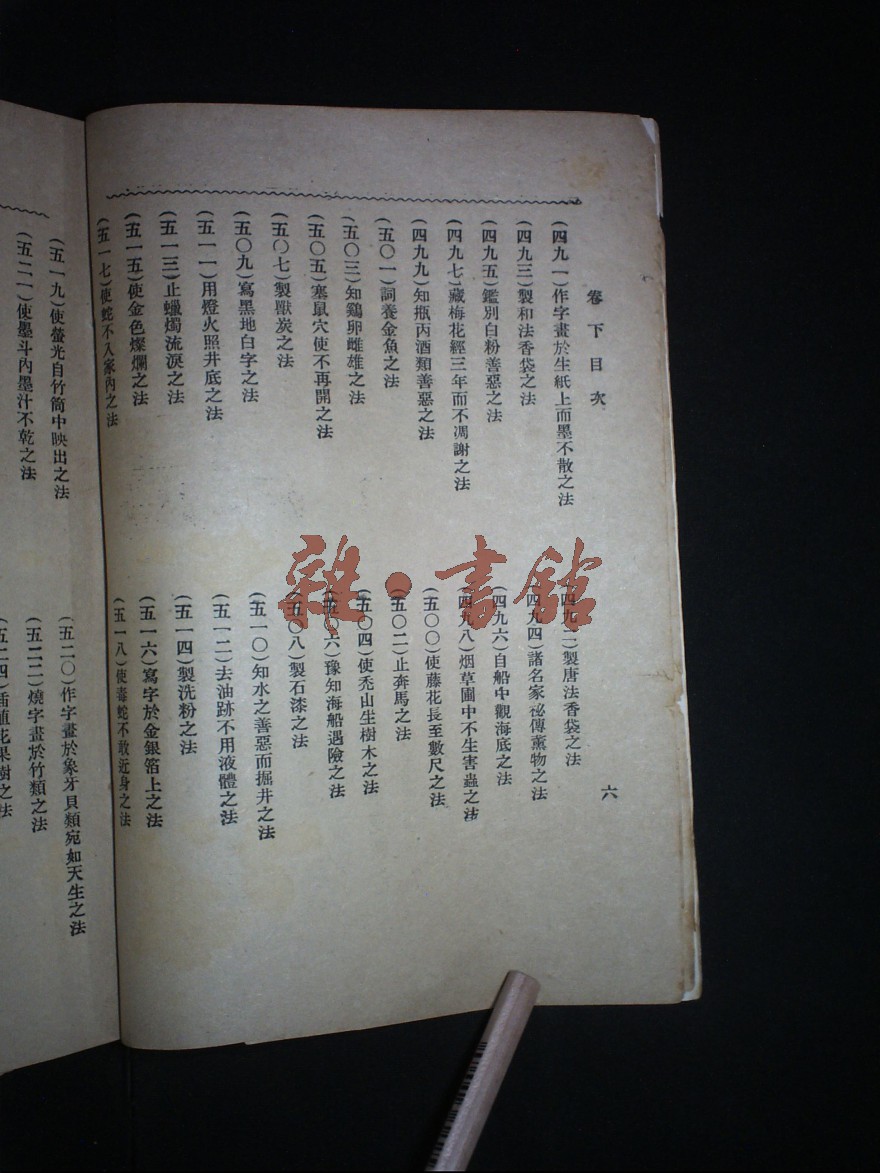 卷下目次
六
(四九一)作字畫於生紙上而墨不散之法
(四九二)製唐法香袋之法
(四九三)製和法香袋之法
(四九四)諸名家祕傳薰物之法
(四九五)鑑別白粉善惡之法
(四九六)自船中觀海底之法
(四九七)藏梅花經三年而不凋謝之法
(四九八)烟草圃中不生害蟲之法
(四九九)知瓶丙酒類善惡之法
(五〇〇)使藤花長至數尺之法
(五〇一)詞養金魚之法
(五〇二)止奔馬之法
(五〇三)知鷄卵雌雄之法
(五〇四)使禿山生樹木之法
(五〇五)塞鼠穴使不再開之法
(五〇六)豫知海船遇險之法
(五〇七)製獸炭之法
(五〇八)製石漆之法
(五〇九)寫黑地白字之法
(五一〇)知水之善惡而掘井之法
(五一一)用燈火照井底之法
(五一二)去油跡不用液體之法
(五一三)止蠟燭流淚之法
(五一四)製洗粉之法
(五一五)使金色燦爛之法
(五一六)寫字於金銀箔上之法
(五一七)使蛇不入家內之法
(五一八)使毒蛇不敢近身之法
(五一九)使螢光自竹筒中映出之法
(五二〇)作字畫於象牙貝類宛如天生之法
(五二一)使墨斗內墨汁不乾之法
(五二二)燒字畫於竹類之法
(五二四)插植花果樹之法
雜·書館